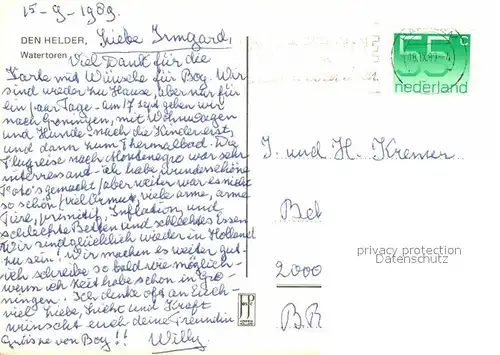 15-9-1989.
DEN HELDER, Liebe Irmgard,
Watertoren
Viel Dank für die
Karte mit Wünsche für Boy. Wir
sind wieder zu Hause, aber nur für
ein paar Tage - am 17 gehen wir
nach Groningen, mit Wohnwagen
und Hunde, nach die Kinder erst,
und dann zum Thermalbad. Die
Flugreise nach Montenegro war sehr
interessant - ich habe wunderschöne
Foto's gemacht, aber weiter war es nicht
so schön, viel Armut, viele arme, arme
Tiere, primitif, Inflation, und
schlechte Betten und schlechtes Essen
Wir sind glücklich wieder in Holland
zu sein! Wir machen es weiter gut-
ich schreibe so bald wie möglich-
wenn ich Zeit habe schon in Gro-
ningen. Ich denke oft an Euch-
viel Liebe, Licht und Kraft
wünscht euch deine Freundin
Grüsse von Boy!! Willy
55 c
nederland
I. und H. Kremer
Bel
privacy protection
Datenschutz
2000
B.R